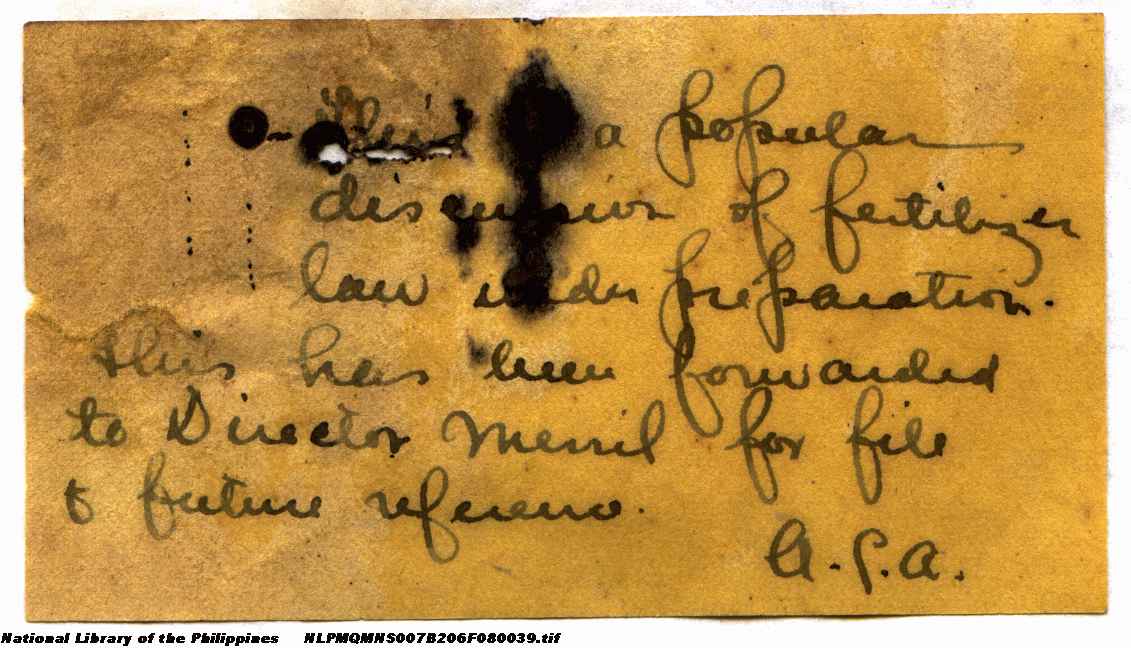 There is a popular
discussion of fertilizer
law under preparation.
This has been forwarded
to Director Merril for file
& future reference.
A.S.A.
National Library of the Philippines NLPMQMNS007B206F080039.tif